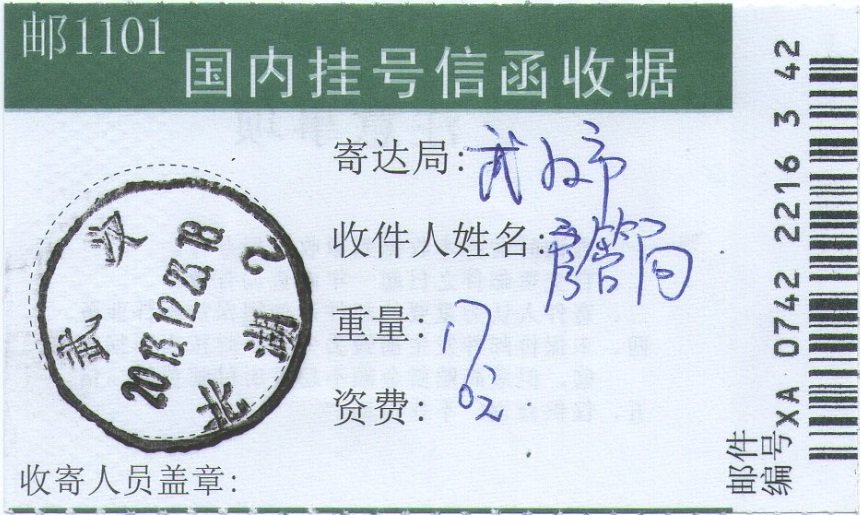 邮1101
国内挂号信函收据
寄达局:武汉市
收件人姓名:房管局
重量:17
资费:
武汉
2013.12.23.18
北湖2
收寄人员盖章:
邮件
编号
XA 0742 2216 3 42